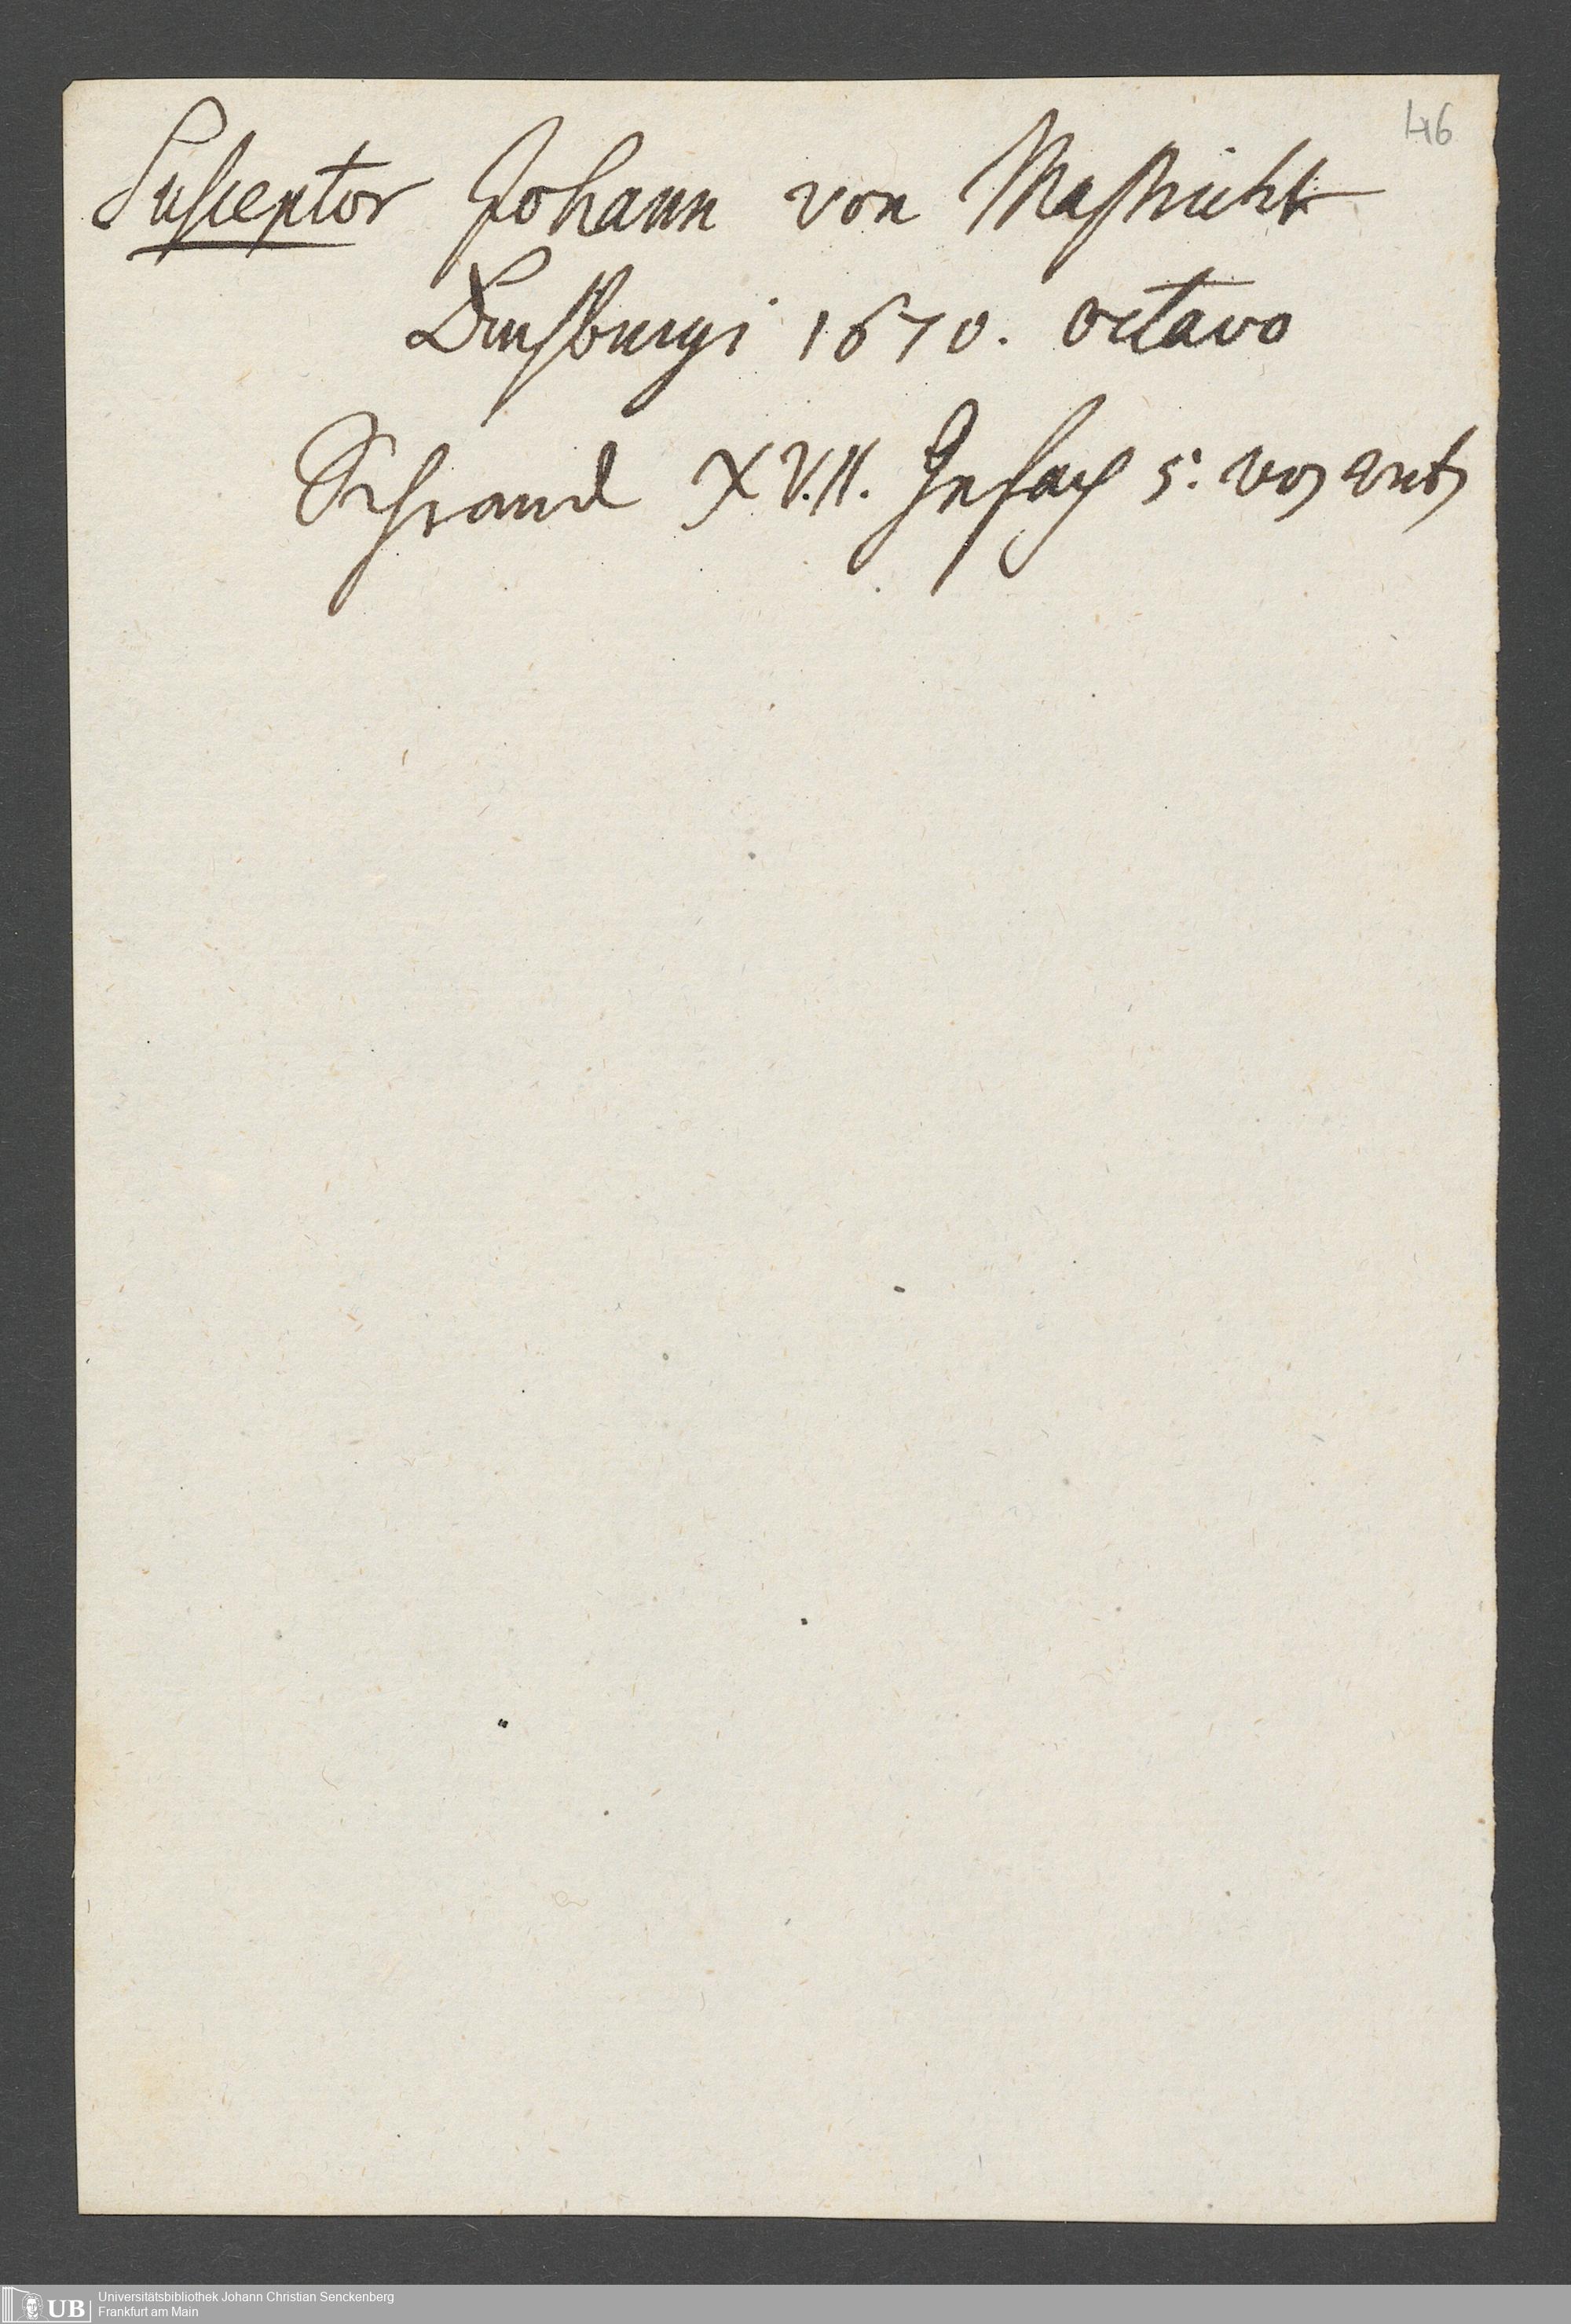 46
Susceptor Johann von Mastricht
Duisburgi 1670. octavo
Schranck XVII. Gefach 5. von unten
UB
Universitätsbibliothek Johann Christian Senckenberg
Frankfurt am Main